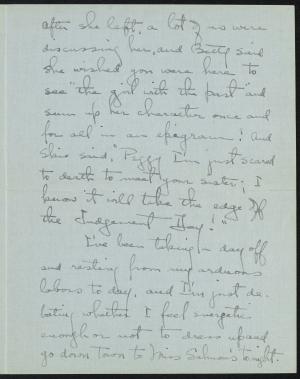 after she left, a lot of us were
discussing her, and Betty said
she wished you were here to
see "the girl with the past" and
sum up her character once and
for all in an epigram! And
she said, "Peggy I'm just scared
to death to meet your sister; I
know it will take the edge off
the Judgement Day!"
I've been taking a day off
and resting from my arduous
labors to day, and I'm just de-
bating whether I feel energetic
enough or not to dress up and
go down town to Miss Salmon's to night.